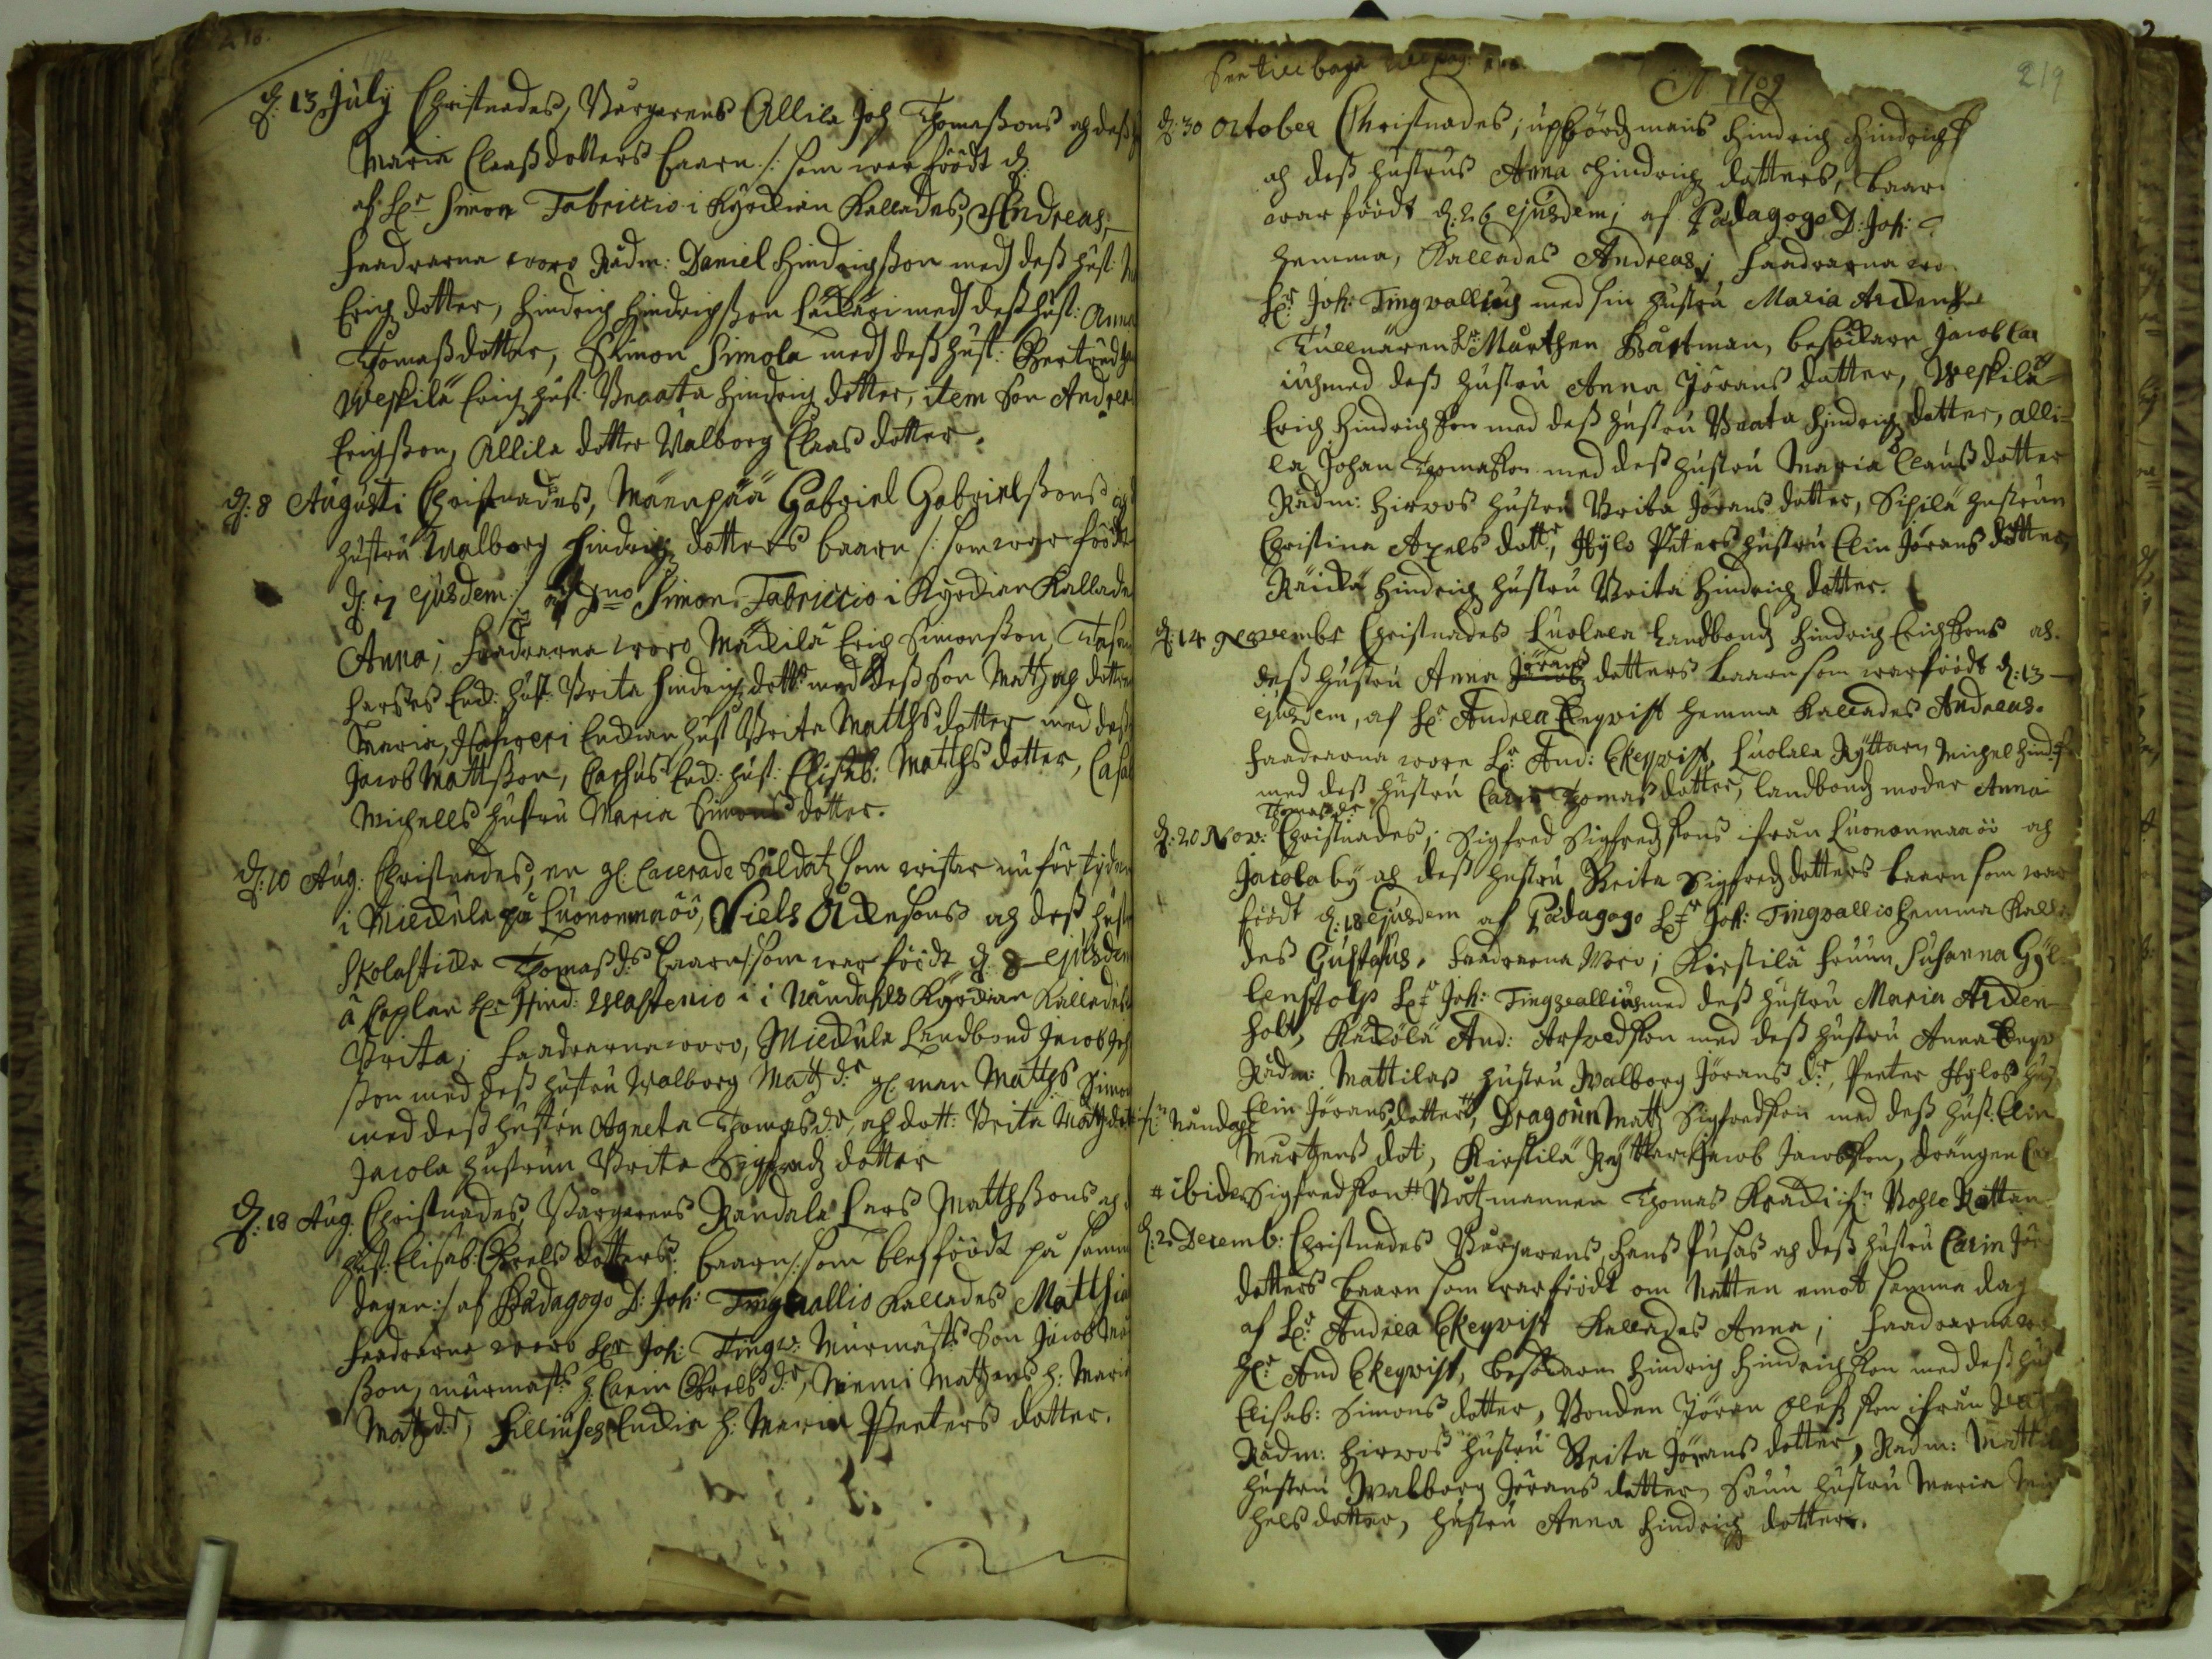 218.
d: 13 July Christnades, Bårgarens Allila Joh Thomaßons och deß
Maria Claaßdotters baarn /: som war föödt d.
af H:r Simon Fabriccio i Kyrckian Kallades, Andreas,
faadrarna woro Rådm: Daniel Hindrichßon med deß hust:
Erichdotter, Hindrich Hindrichßon med deß hust: Anna
Thomaßdotter, Simon Simola med deß hust: Gertrud
Weskilä Erich hust: Beata Hindrichdotter, item son Andrea
Erichßon, Allila dotter Walborg Claasdotter.
d: 8 Augusti Christnades, Männpää Gabriel Gabrielßons och
hustru Walborg Hindrichdotters baarn /: som war föödt
d: 7 ejusdem :/ af Dno Simon Fabriccio i Kyrckian Kallade
Anna; faadrarna woro Mäckilä Erich Simonßon,
Enck: hust: Brita Hindrichdott:r med deß son Matz och dotter
Maria, Enckian hust Brita Matthsdotter med deß
Jacob Mattßon, Enck: hust: Elisab: Matthsdotter,
Michells hustru Maria Simonsdotter.
d: 10 Aug: Christnades, en gl. Saldatz som wistas nu för tyden
i Mieckula på Luononmaöö, Niels Åckesons och deß hustru
Skolasticka Thomasd:r baarn /: som war föödt d. 8 ejusdem
a Caplan H:r Hind: i Nåndahls Kyrckian Kallades
Brita; faadrarna woro, Mieckula Landbond Jacob Joh
ßon med deß hustru Walborg Matzd:r gl. man Matths Simon
med deß hustru Agneta Thomasd:r, och dott: Brita Matzdott
Jacola hustrun Brita Sigfredzdotter
d: 18 Aug. Christnades Bårgarens Randala Lars Matthßons och
hust: Elisab: Grelsdotters baarn /: som blef föödt på samma
dagen :/ af Pædagogo D: Joh: Tingwallio Kallades Matthia
faadrarna woro H:r Joh: Tingw: Murmäst:s Son Jacob
ßon, murmäst:s h: Carin Grelsd:r, Niemi Matzens h: Maria
Matzd:r, Enckia h: Maria Peetersdotter.
219
See tillbaga
A 1709
d: 30 October Christnades; upbördzmans Hindrich Hindrichs
och deß hustrus Anna Hindrichdotters, baar
war föödt d. 26 ejusdem; af Pædagogo D: Joh:
hemma, Kallades Andreas; faadrarna wo
H:r Joh: Tingvallius med sin hustru Maria Arckenh
Tullnären H:r Mårthen Båtman, besökarn Jacob
med deß hustru Anna Jöransdotter, Weskilä
Erich Hindrichson med deß hustru Beata Hindrichdotter, Alli-
la Johan Thomaßon med deß hustru Maria Clausdotter
Rådm: Hirwos hustru Brita Jöransdotter, Sipilä hustrun
Christina Axelsdott:r, Hylo Peters hustru Elin Jöransdotter,
Räickä Hindrich hustru Brita Hindrichdotter.
d: 14 Novembr Christnades Luolala Landbondz Hindrich Erichsons och
deß hustru Anna Jöransdotters baarn som war föödt d: 13
ejusdem, af H:r Andrea Ekeqvist hemma Kallades Andreas.
faadrarna wore H:r And: Ekeqvist, Luolala Ryttarn Michel Hind:s
med deß hustru Carin Thomasdotter, landbondz moder Anna
Thomasd:r
d: 20 Nov: Christnades; Sigfred Sigfredzsons ifrån Luononmaöö och
Jacola by och deß hustru Brita Sigfredzdotters baarn som war
föödt d: 18 ejusdem af Pædagogo H:r Joh: Tingvallio hemma Kalla
des Gustafus. faadrarna woro; Kirstilä fruun Susanna Gyl-
lenstolp H:r Joh: Tingvallius med deß hustru Maria Arcken-
holt, Käcölä And: Arfvedson med deß hustru Anna
Rådm: Mattilas hustru Walborg Jöransd:r, Peeter Hylos hus
Elin Jöransdotter, Dragoun Matz Sigfredson med deß hust: Elin
if:n Nåndahl
Mårtens dot, Kirstilä Ryttar Jacob Jacobson, drängen
# ibidem Sigfredson # Båtzmannen Thomas if:n
d: 2 Decemb: Christnades Bårgarens Hans Pusas och deß hustru Carin Jör
dotters baarn som war föödt om Natten emot samma dag
af H:r Andrea Ekeqvist Kallades Anna; faadrarna wo
H:r And Ekeqvist, besökarn Hindrich Hindrichson med deß hu
Elisab: Simonsdotter, Bonden Jöran Olefson ifrån
Rådm: Hirwos hustru Brita Jöransdotter, Rådm: Mattil
hustru Walborg Jöransdotter, hustru Maria Mi
helsdotter, hustru Anna Hindrichdotter.